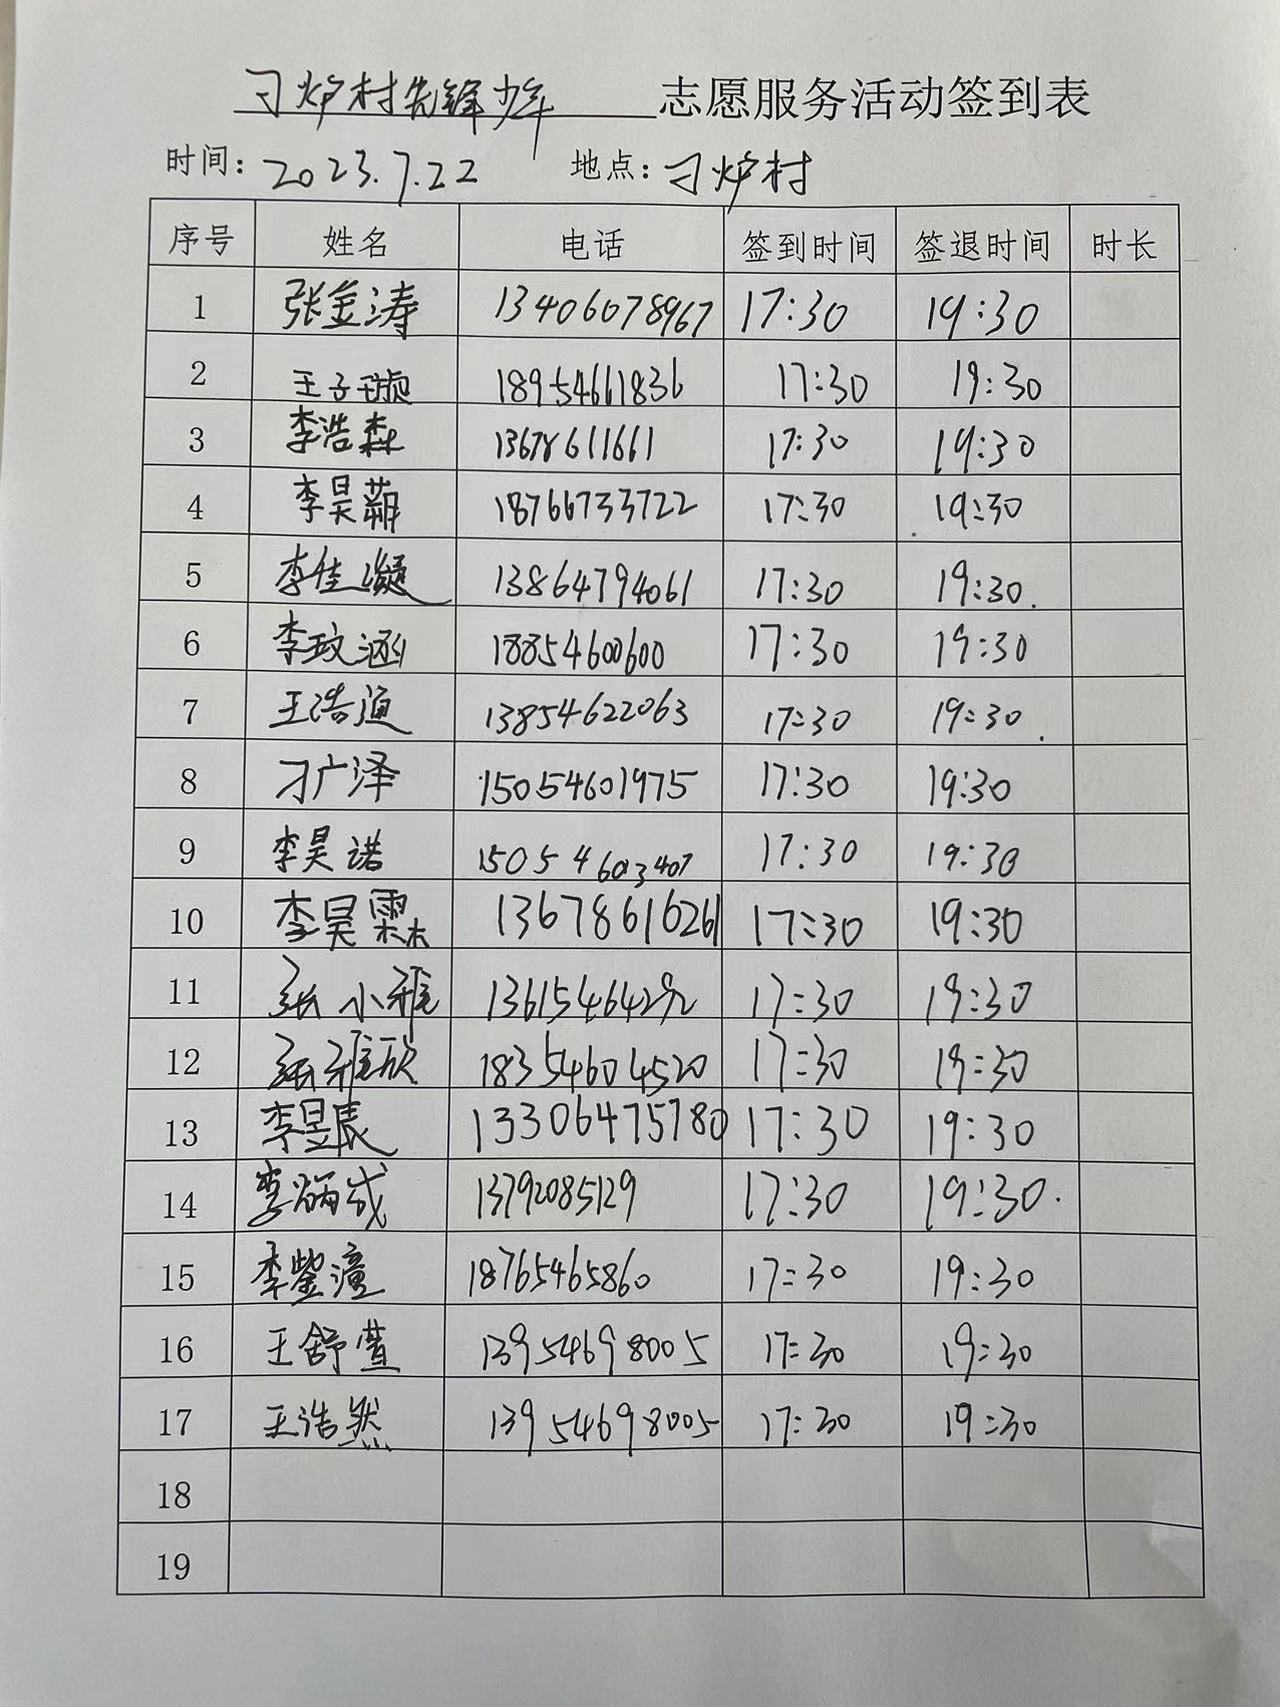 刁炉村先锋少年 志愿服务活动签到表
时间: 2023.7.22 地点: 刁炉村
序号 姓名 电话 签到时间 签退时间 时长
1 张金涛 13406078967 17:30 19:30
2 王子璇 18954661836 17:30 19:30
3 李浩森 13678611661 17:30 19:30
4 李昊 18766733722 17:30 19:30
5 李佳凝 13864794061 17:30 19:30
6 李玟涵 18854600600 17:30 19:30
7 王浩 13854622063 17:30 19:30
8 刁广泽 15054601975 17:30 19:30
9 李昊诺 15054603407 17:30 19:30
10 李昊霖 13678616261 17:30 19:30
11 张小雅 13615464292 17:30 19:30
12 张雅欣 18354604520 17:30 19:30
13 李昱辰 13306475780 17:30 19:30
14 李炳成 13792085129 17:30 19:30
15 李紫潼 18765465860 17:30 19:30
16 王舒萱 13954698005 17:30 19:30
17 王浩然 13954698005 17:30 19:30
18
19